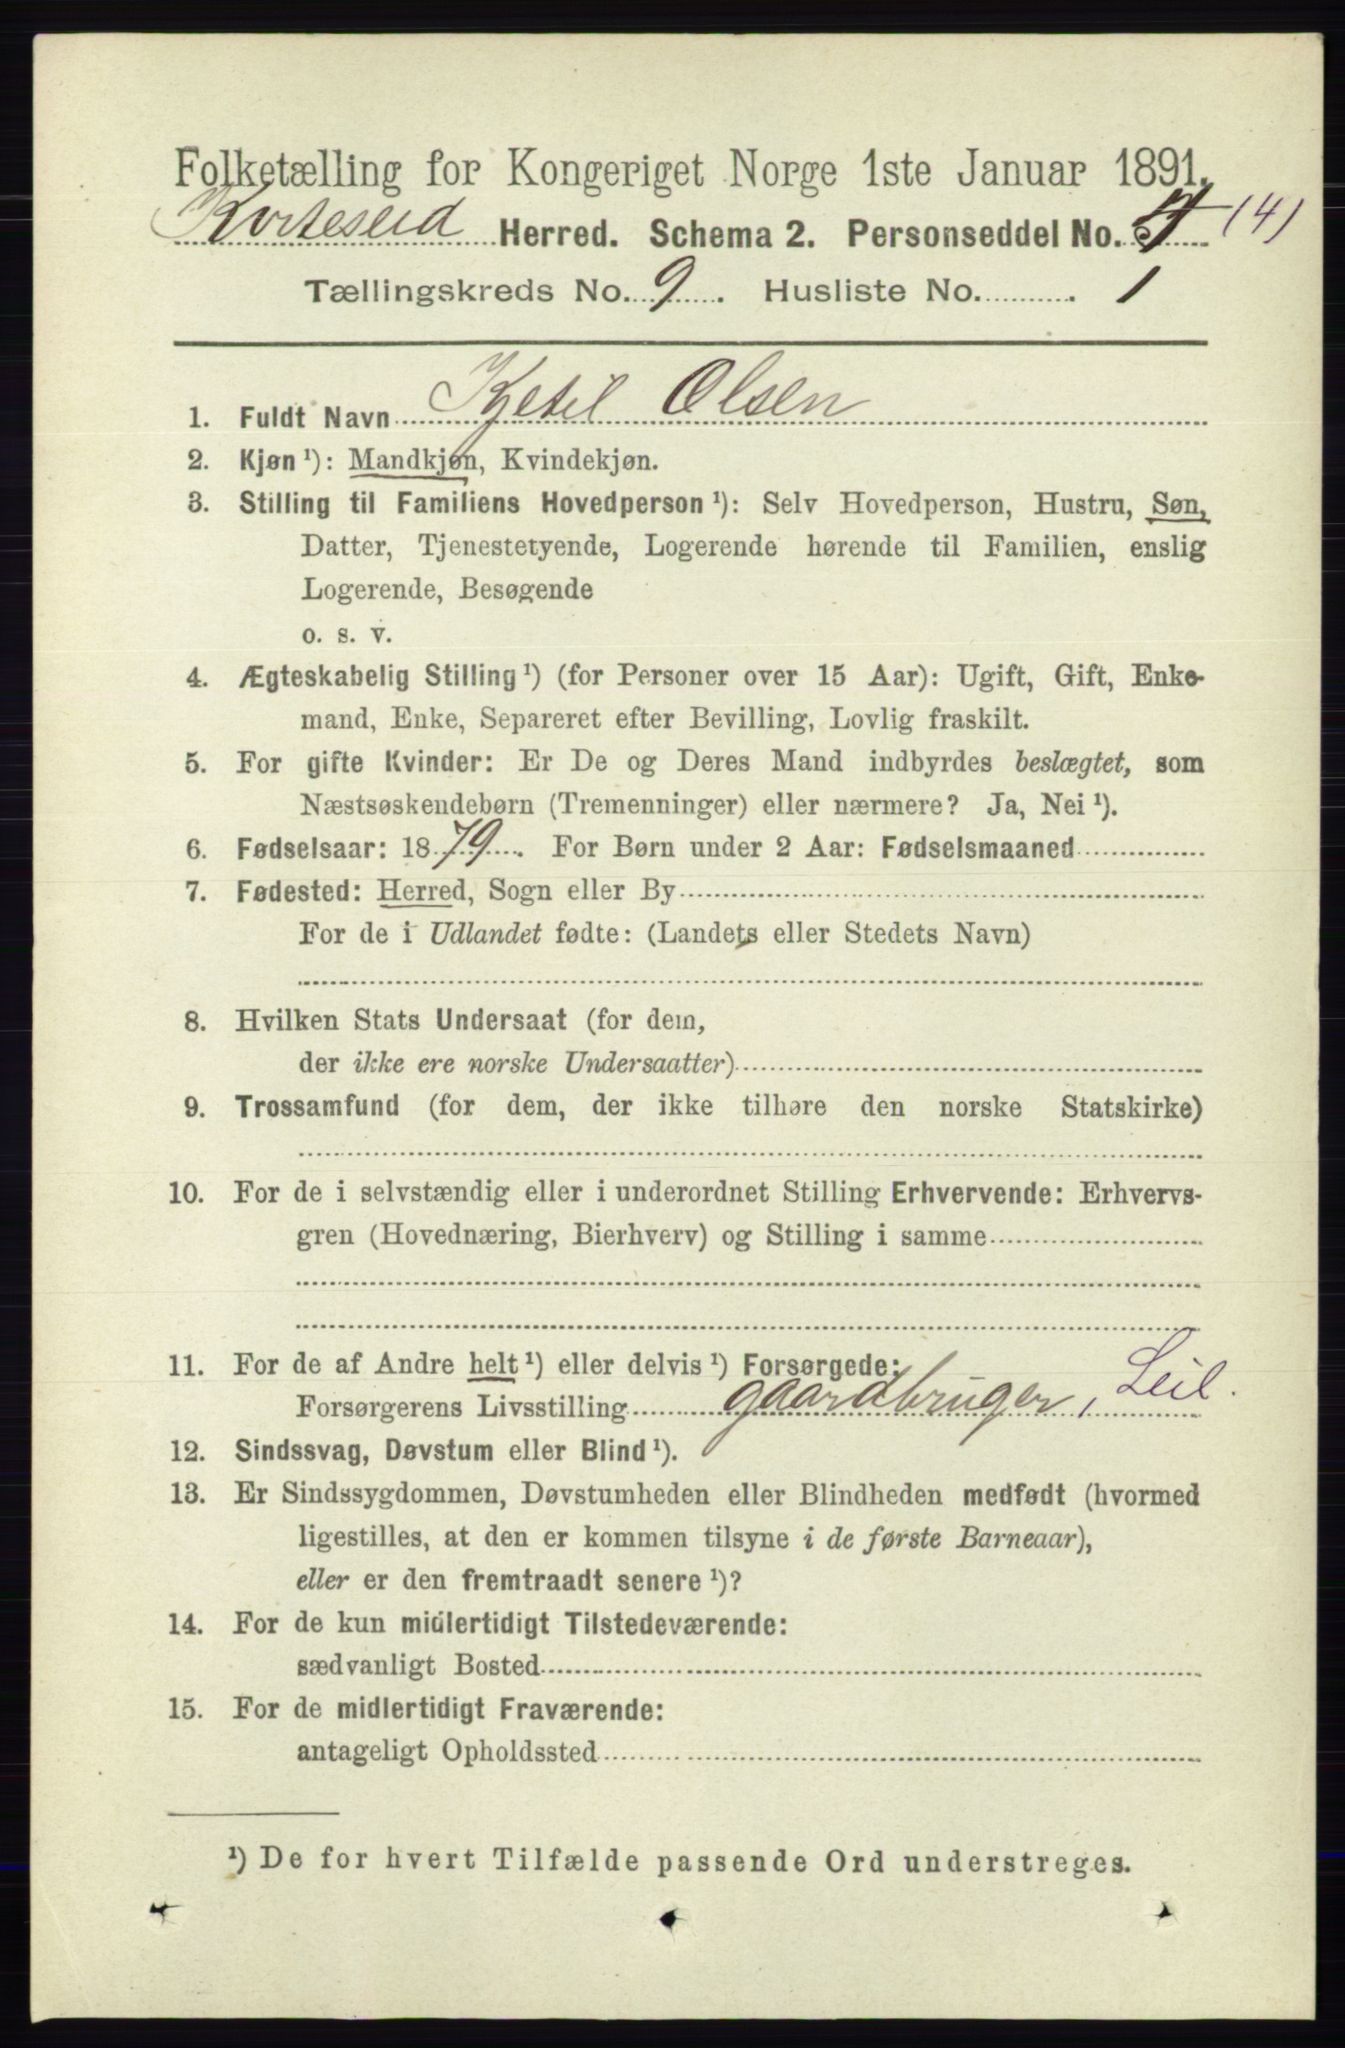 Folketælling for Kongeriget Norge 1ste Januar 1891.
Kviteseid Herred. Schema 2. Personseddel No. (4)
Tællingskreds No. 9. Husliste No. 1
1. Fuldt Navn Kjetil Olsen
2. Kjøn¹): Mandkjøn, Kvindekjøn.
3. Stilling til Familiens Hovedperson¹): Selv Hovedperson, Hustru, Søn,
Datter, Tjenestetyende, Logerende hørende til Familien, enslig
Logerende, Besøgende
o. s. v.
4. Ægteskabelig Stilling¹) (for Personer over 15 Aar): Ugift, Gift, Enke-
mand, Enke, Separeret efter Bevilling, Lovlig fraskilt.
5. For gifte Kvinder: Er De og Deres Mand indbyrdes beslægtet, som
Næstsøskendebørn (Tremenninger) eller nærmere? Ja, Nei¹).
6. Fødselsaar: 1879. For Børn under 2 Aar: Fødselsmaaned
7. Fødested: Herred, Sogn eller By
For de i Udlandet fødte: (Landets eller Stedets Navn)
8. Hvilken Stats Undersaat (for dem,
der ikke ere norske Undersaatter)
9. Trossamfund (for dem, der ikke tilhøre den norske Statskirke)
10. For de i selvstændig eller i underordnet Stilling Erhvervende: Erhvervs-
gren (Hovednæring, Bierhverv) og Stilling i samme
11. For de af Andre helt¹) eller delvis¹) Forsørgede:
Forsørgerens Livsstilling gaardbruger, Leil.
12. Sindssvag, Døvstum eller Blind¹).
13. Er Sindssygdommen, Døvstumheden eller Blindheden medfødt (hvormed
ligestilles, at den er kommen tilsyne i de første Barneaar),
eller er den fremtraadt senere¹)?
14. For de kun midlertidigt Tilstedeværende:
sædvanligt Bosted
15. For de midlertidigt Fraværende:
antageligt Opholdssted
¹) De for hvert Tilfælde passende Ord understreges.